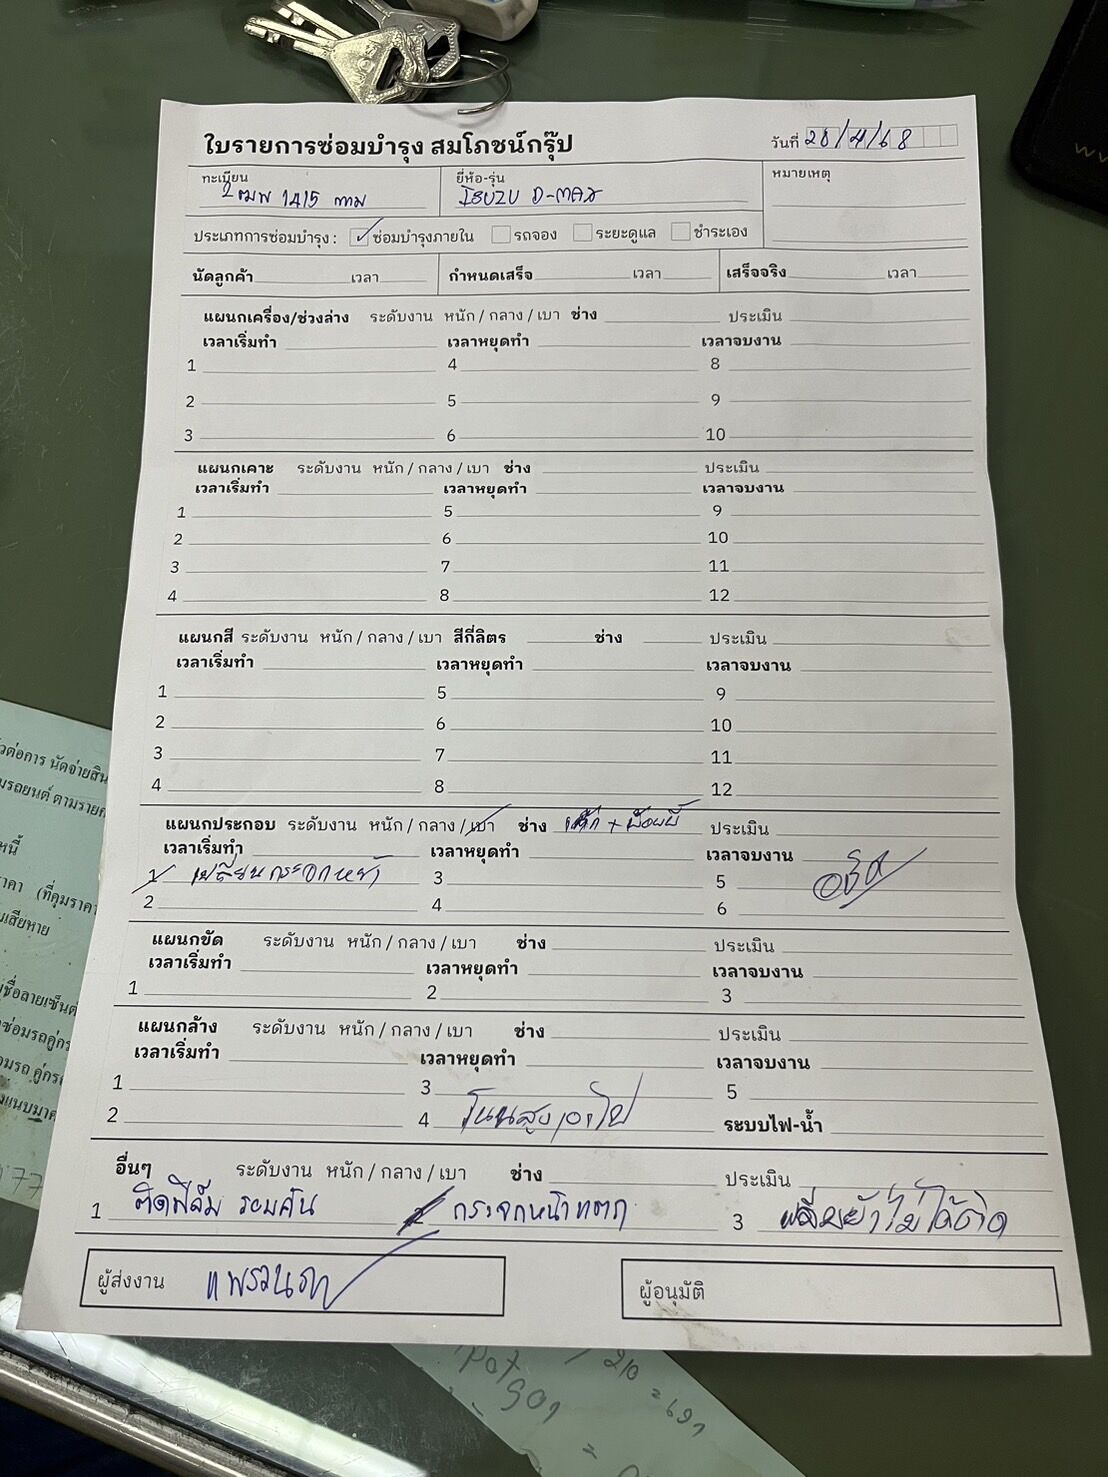 ใบรายการซ่อมบำรุง สมโภชน์กรุ๊ป
วันที่ 20/4/68
ทะเบียน 2ฒพ 1415 กทม
ยี่ห้อ-รุ่น ISUZU D-MAX
หมายเหตุ
ประเภทการซ่อมบำรุง : ซ่อมบำรุงภายใน รถจอง ระยะดูแล ชำระเอง
นัดลูกค้า เวลา กำหนดเสร็จ เวลา เสร็จจริง เวลา
แผนกเครื่อง/ช่วงล่าง ระดับงาน หนัก / กลาง / เบา ช่าง ประเมิน
เวลาเริ่มทำ เวลาหยุดทำ เวลาจบงาน
1 4 8
2 5 9
3 6 10
แผนกเคาะ ระดับงาน หนัก / กลาง / เบา ช่าง ประเมิน
เวลาเริ่มทำ เวลาหยุดทำ เวลาจบงาน
1 5 9
2 6 10
3 7 11
4 8 12
แผนกสี ระดับงาน หนัก / กลาง / เบา สีกี่ลิตร ช่าง ประเมิน
เวลาเริ่มทำ เวลาหยุดทำ เวลาจบงาน
1 5 9
2 6 10
3 7 11
4 8 12
แผนกประกอบ ระดับงาน หนัก / กลาง / เบา ช่าง ประเมิน
เวลาเริ่มทำ เวลาหยุดทำ เวลาจบงาน
1 เปลี่ยนกระจกหน้า 3 5
2 4 6
แผนกขัด ระดับงาน หนัก / กลาง / เบา ช่าง ประเมิน
เวลาเริ่มทำ เวลาหยุดทำ เวลาจบงาน
1 2 3
แผนกล้าง ระดับงาน หนัก / กลาง / เบา ช่าง ประเมิน
เวลาเริ่มทำ เวลาหยุดทำ เวลาจบงาน
1 3 5
2 4 ระบบไฟ-น้ำ
อื่นๆ ระดับงาน หนัก / กลาง / เบา ช่าง ประเมิน
1 ติดฟิล์ม รอบคัน 2 กระจกหน้าแตก 3 ฟิล์มยังไม่ได้ติด
ผู้ส่งงาน
ผู้อนุมัติ